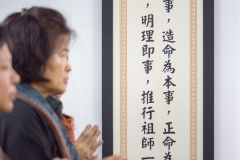 事，造命為本事，正命為
，明理即事，推行祖師一